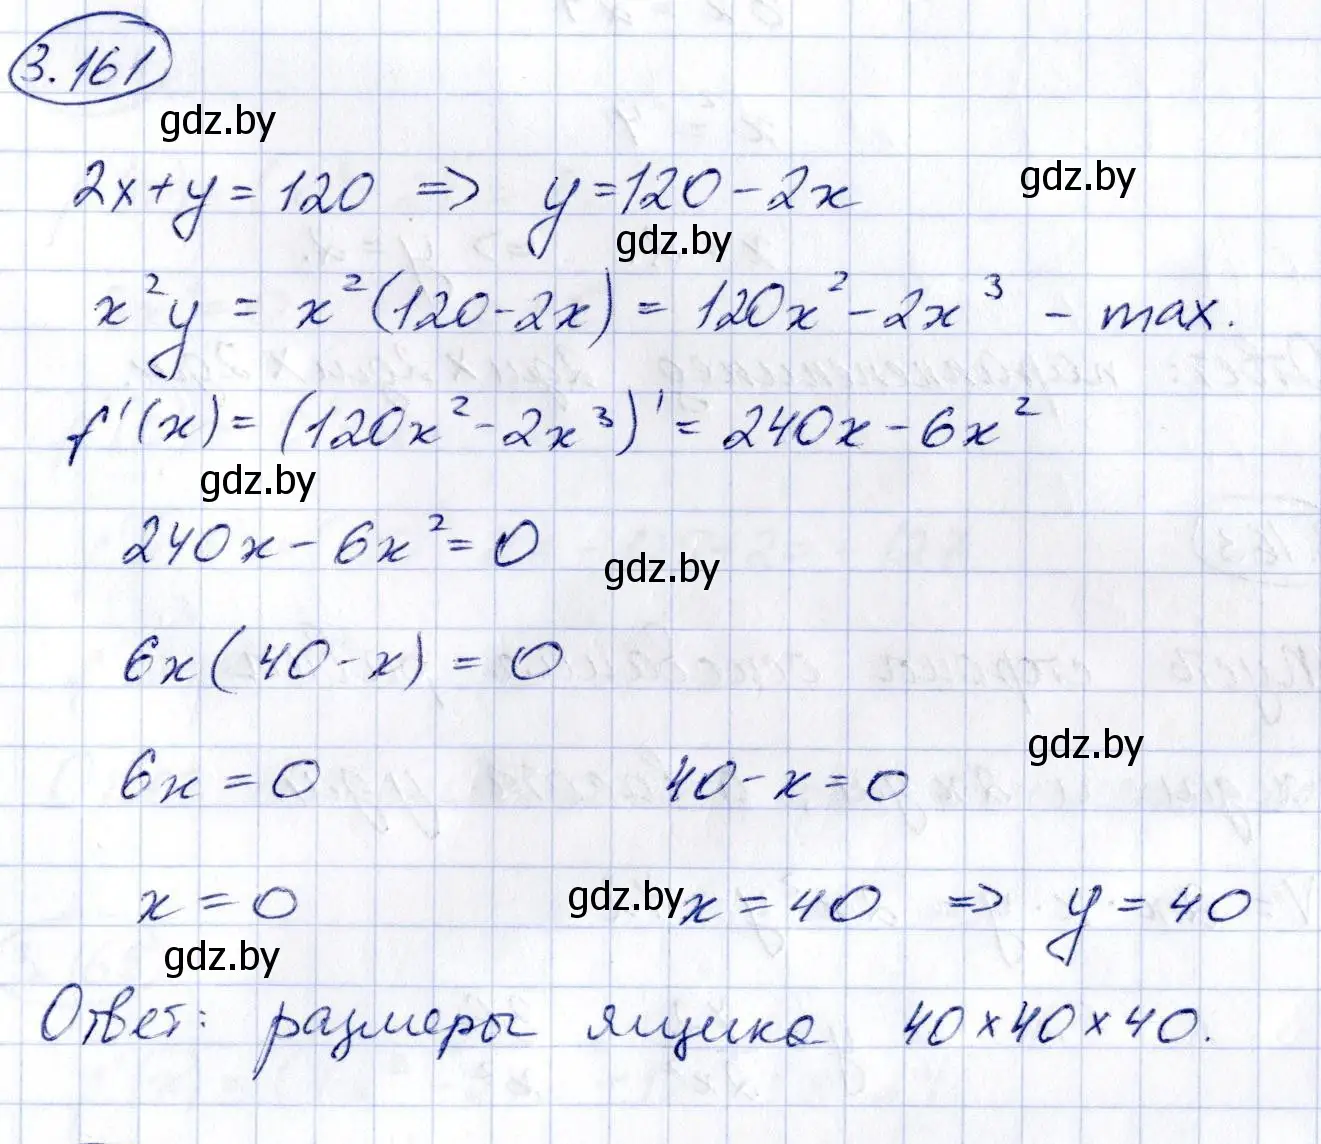 3.161
gdz.by
2x+y=120 => y=120-2x
gdz.by
gdz.by
x²y = x²(120-2x) = 120x²-2x³ - max.
f'(x) = (120x²-2x³)' = 240x-6x²
gdz.by
240x-6x²=0
gdz.by
6x(40-x)=0
gdz.by
6x=0 40-x=0
x=0 gdz.by x=40 => y=40
gdz.by
Ответ: размеры ящика 40×40×40.